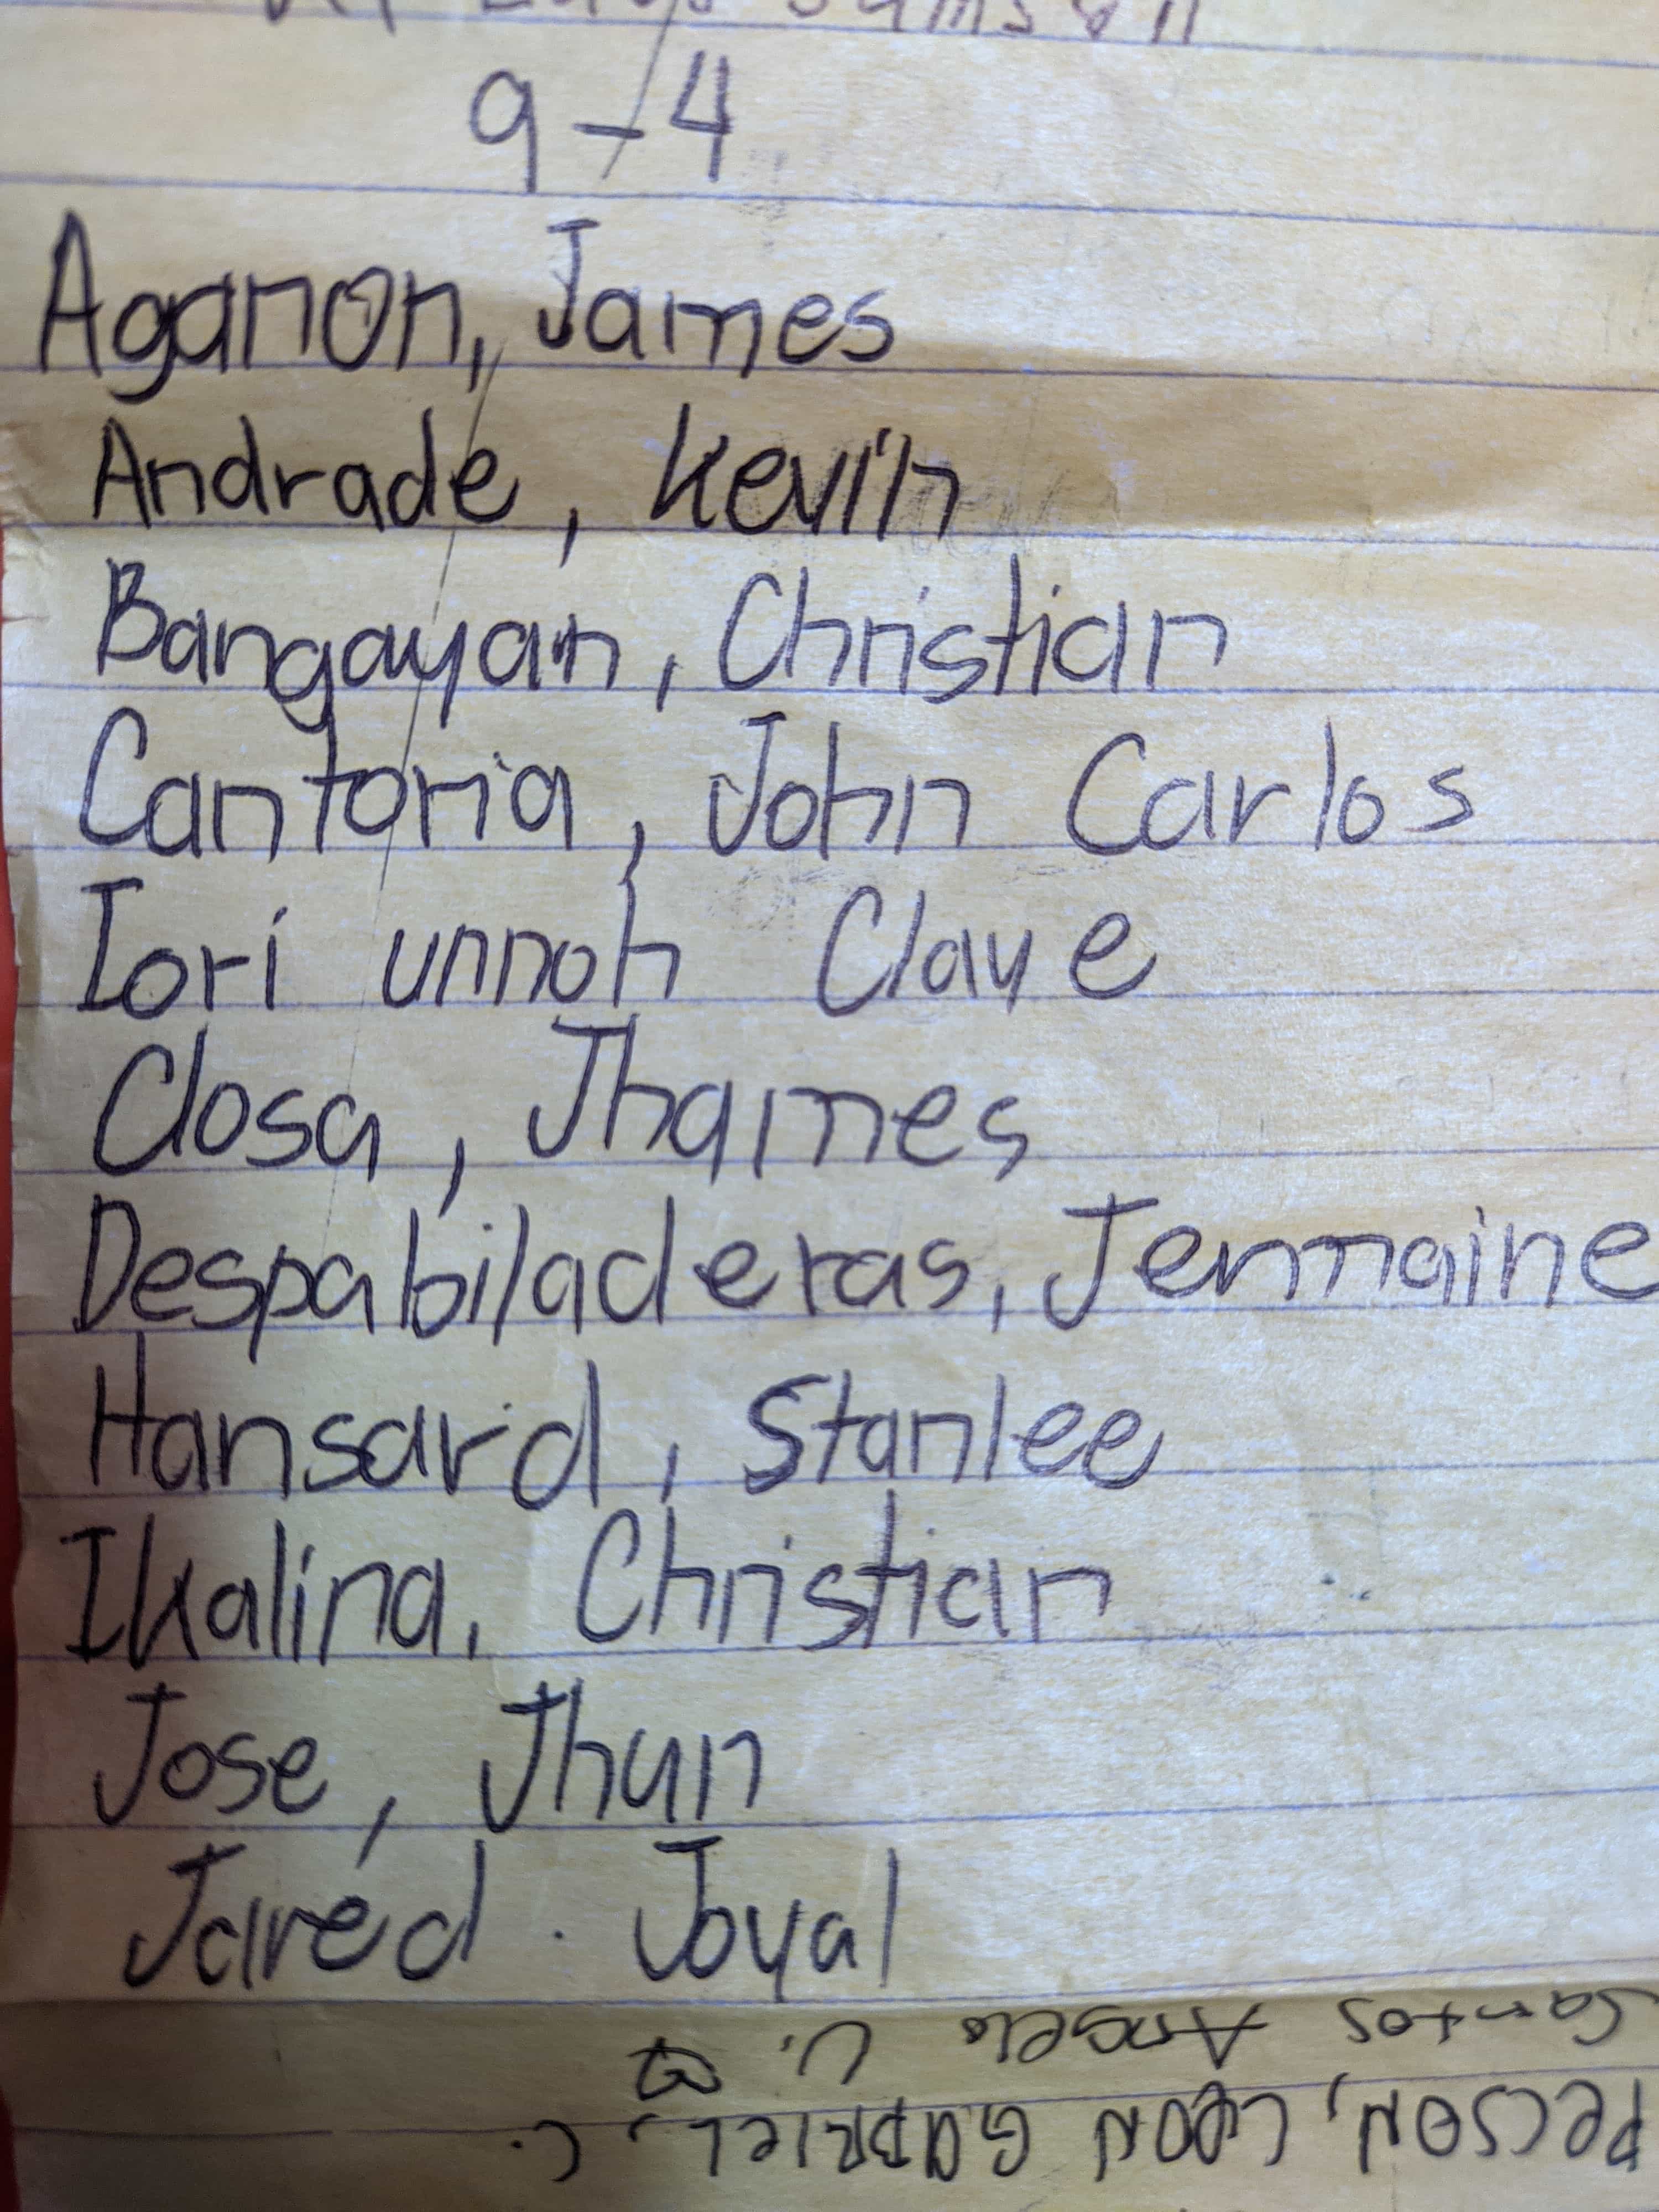 Samson
9-4
Aganon, James
Andrade, Kevin
Bangayan, Christian
Cantoria, John Carlos
Iori unnoh Clave
Closa, Jhames
Despabiladeras, Jermaine
Hansard, Stanlee
Ikalina, Christian
Jose, Jhun
Jared. Joyal
Santos Angelo V.
PECSON, LEON GABRIEL, C.